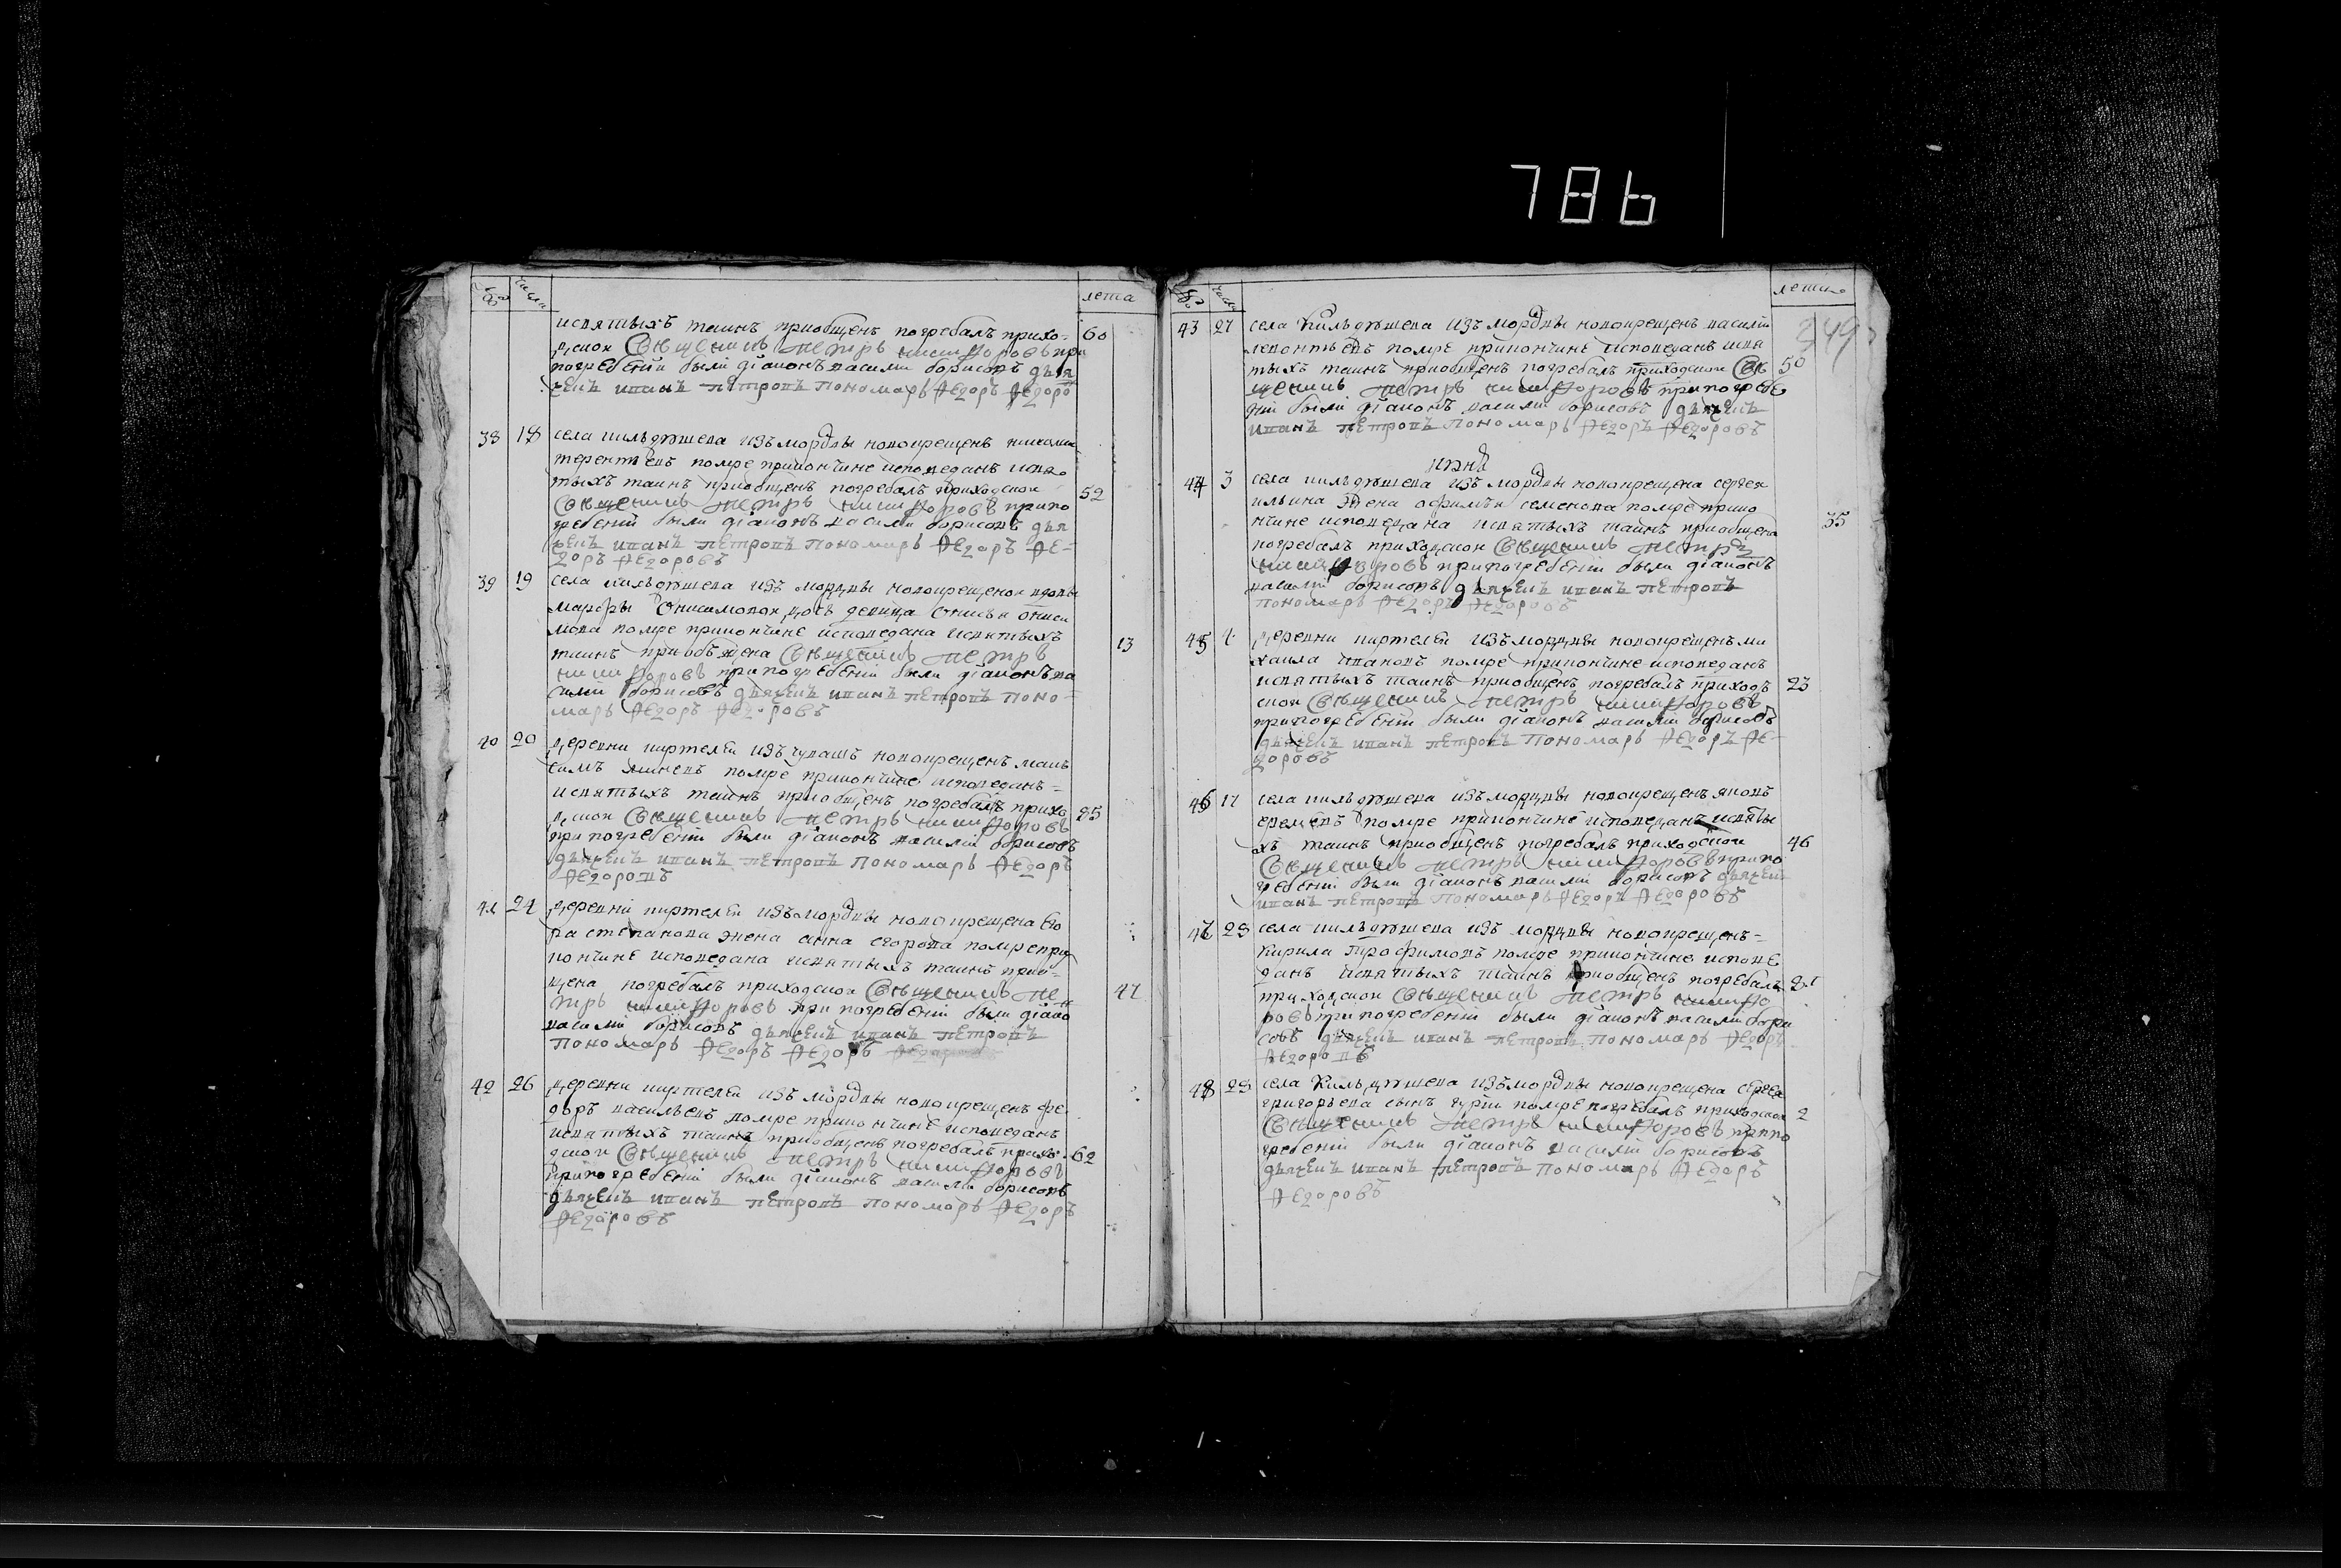 786
лета
исвятыхъ таинъ приобщенъ погребалъ прихо-
60
дской Священникъ Петръ Никифоровъ при
погребении были діаконъ василий борисовъ дья
чекъ иванъ петровъ пономарь Федоръ Федоро
38 18 села кильдюшева изъ мордвы новокрещенъ никита
терентьевъ помре прикончине исповеданъ исвя
тыхъ таинъ приобщенъ погребалъ приходской
52
Священникъ Петръ Никифоровъ припо
гребении были діаконъ василий борисовъ дья
чекъ иванъ петровъ пономарь Федоръ Фе-
доръ Федоровъ
39 19 села кильдюшева изъ мордвы новокрещеной вдовы
марфы Онисимовой дочь девица
мова помре прикончине исповедана исвятыхъ
13
таинъ приобъщена Священникъ Петръ
Никифоровъ припогребении были діаконъ ва
силий борисовъ дьячекъ иванъ петровъ поно-
марь Федоръ Федоровъ
40 20 деревни киртелей изъ чувашъ новокрещенъ макъ
симъ помре прикончине исповеданъ
исвятыхъ таинъ приобщенъ погребалъ прихо
дской Священникъ Петръ Никифоровъ
при погребении были діаконъ василий борисовъ
дьячекъ иванъ петровъ пономарь Федоръ
Федоровъ
41 24 деревни киртелей изъ мордвы новокрещена его
ра степанова жена анна егорова помре при
кончине исповедана исвятыхъ таинъ прио-
щена погребалъ приходской Священникъ Пе
47
тръ Никифоровъ при погребении были діако
василий борисовъ дьячекъ иванъ петровъ
пономарь Федоръ Федоръ
42 26 деревни киртелей изъ мордвы новокрещенъ фе
доръ васильевъ помре прикончине исповеданъ
исвятыхъ таинъ приобщенъ погребалъ прихо
дской Священникъ Петръ Никифоровъ
62
припогребении были діаконъ василий борисовъ
дьячекъ иванъ петровъ пономарь Федоръ
Федоровъ
лета
43 27 села Кильдюшева изъ мордвы новокрещенъ василий
леонтьевъ помре прикончине исповеданъ исвя
тыхъ таинъ приобщенъ погребалъ приходской Свя
50
щенникъ Петръ Никифоровъ припогребе
нии были діаконъ василий борисовъ дьячекъ
иванъ петровъ пономарь Федоръ Федоровъ
июнь
44 3 села кильдюшева изъ мордвы новокрещена сергея
ильина жена офимья семенова помре прико
35
нчине исповедана исвятыхъ таинъ приобщена
погребалъ приходской Священникъ Петръ
Никифоровъ припогребении были діаконъ
василий борисовъ дьячекъ иванъ петровъ
пономарь Федоръ Федоровъ
45 деревни киртелей изъ мордвы новокрещенъ ми
хаила ивановъ помре прикончине исповеданъ
исвятыхъ таинъ приобщенъ погребалъ приходъ
23
ской Священникъ Петръ Никифоровъ
припогребении были діаконъ василий борисовъ
дьячекъ иванъ петровъ пономарь Федоръ Фе-
доровъ
46 17 села кильдюшева изъ мордвы новокрещенъ яковъ
еремевъ помре прикончине исповеданъ исвяты
хъ таинъ приобщенъ погребалъ приходской
46
Священникъ Петръ Никифоровъ припо
гребении были діаконъ василий борисовъ дьячекъ
иванъ петровъ пономарь Федоръ Федоровъ
47 23 села кильдюшева изъ мордвы новокрещенъ-
Кирила трофимовъ помре прикончине испове
данъ исвятыхъ таинъ приобщенъ погребалъ
приходской Священникъ Петръ Никифо
ровъ припогребении были діаконъ василий бори
совъ дьячекъ иванъ петровъ пономарь Федоръ
Федоровъ
48 29 села Кильдюшева изъ мордвы новокрещена сергея
григорьева сынъ гурий помре погребалъ приходской
2
Священникъ Петръ Никифоровъ припо
гребении были діаконъ василий борисовъ
дьячекъ иванъ петровъ пономарь Федоръ
Федоровъ